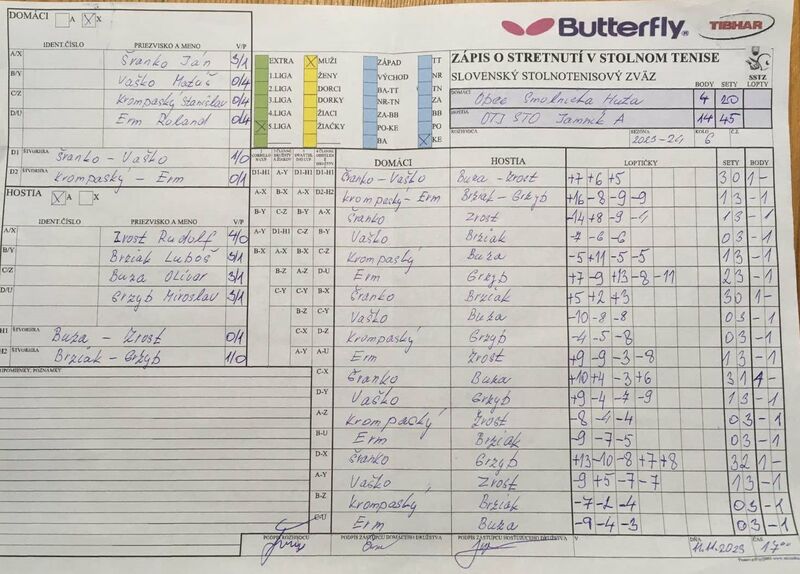 DOMÁCI A X
Butterfly TIBHAR
IDENT.ČÍSLO PRIEZVISKO A MENO V/P
ZÁPIS O STRETNUTÍ V STOLNOM TENISE
SLOVENSKÝ STOLNOTENISOVÝ ZVÄZ
SSTZ
BODY SETY LOPTY
A/X Šranko Ján 3/1
B/Y Vaško Matúš 0/4
C/Z Krompaský Stanislav 0/4
D/U Erm Roland 0/4
EXTRA
1.LIGA
2.LIGA
3.LIGA
4.LIGA
5.LIGA
MUŽI
ŽENY
DORCI
DORKY
ŽIACI
ŽIAČKY
ZÁPAD
VÝCHOD
BA-TT
NR-TN
ZA-BB
PO-KE
BA
TT
NR
TN
ZA
BB
PO
KE
DOMÁCI Obec Smolnícka Huta 4 20
HOSTIA OTJ STO Jamník A 14 45
ROZHODCA SEZÓNA 2023-24 KOLO 6 Č.Z.
D1 ŠTVORHRA Šranko - Vaško 1/0
D2 Krompaský - Erm 0/1
HOSTIA A X
IDENT.ČÍSLO PRIEZVISKO A MENO V/P
A/X Zrost Rudolf 4/0
B/Y Brziak Luboš 3/1
C/Z Buza Olivar 3/1
D/U Grzyb Miroslav 3/1
H1 ŠTVORHRA Buza - Zrost 0/1
H2 ŠTVORHRA Brziak - Grzyb 1/0
PRIPOMIENKY, POZNÁMKY
DOMÁCI HOSTIA LOPTIČKY SETY BODY
D1-H1 Šranko - Vaško Buza - Zrost +7 +6 +5 3 0 1 -
D2-H2 Krompaský - Erm Brziak - Grzyb +16 -8 -9 -9 1 3 - 1
A-X Šranko Zrost 1 3 - 1
B-Y Vaško Brziak -7 -6 -6 0 3 - 1
C-Z Krompaský Buza -5 +11 -5 -5 1 3 - 1
D-U Erm Grzyb +7 -9 +13 -8 -11 2 3 - 1
A-Y Šranko Brziak +5 +2 +3 3 0 1 -
B-X Vaško Buza -10 -8 -8 0 3 - 1
Krompaský Grzyb -4 -5 -8 0 3 - 1
A-U Erm Zrost +9 -9 -3 -8 1 3 - 1
C-X Šranko Buza +10 +4 -3 +6 3 1 1 -
D-Y Vaško Grzyb +9 -4 -7 -9 1 3 - 1
A-Z Krompaský Zrost -8 -4 -4 0 3 - 1
B-U Erm Brziak -9 -7 -5 0 3 - 1
D-X Šranko Grzyb +13 -10 -8 +7 +8 3 2 1 -
A-Y Vaško Zrost -9 +5 -7 -7 1 3 - 1
B-Z Krompaský Brziak -7 -2 -4 0 3 - 1
C-U Erm Buza -9 -4 -3 0 3 - 1
PODPIS ROZHODCU PODPIS ZÁSTUPCU DOMÁCEHO DRUŽSTVA PODPIS ZÁSTUPCU HOSŤUJÚCEHO DRUŽSTVA V DŇA 11.11.2023 ČAS 17⁰⁰